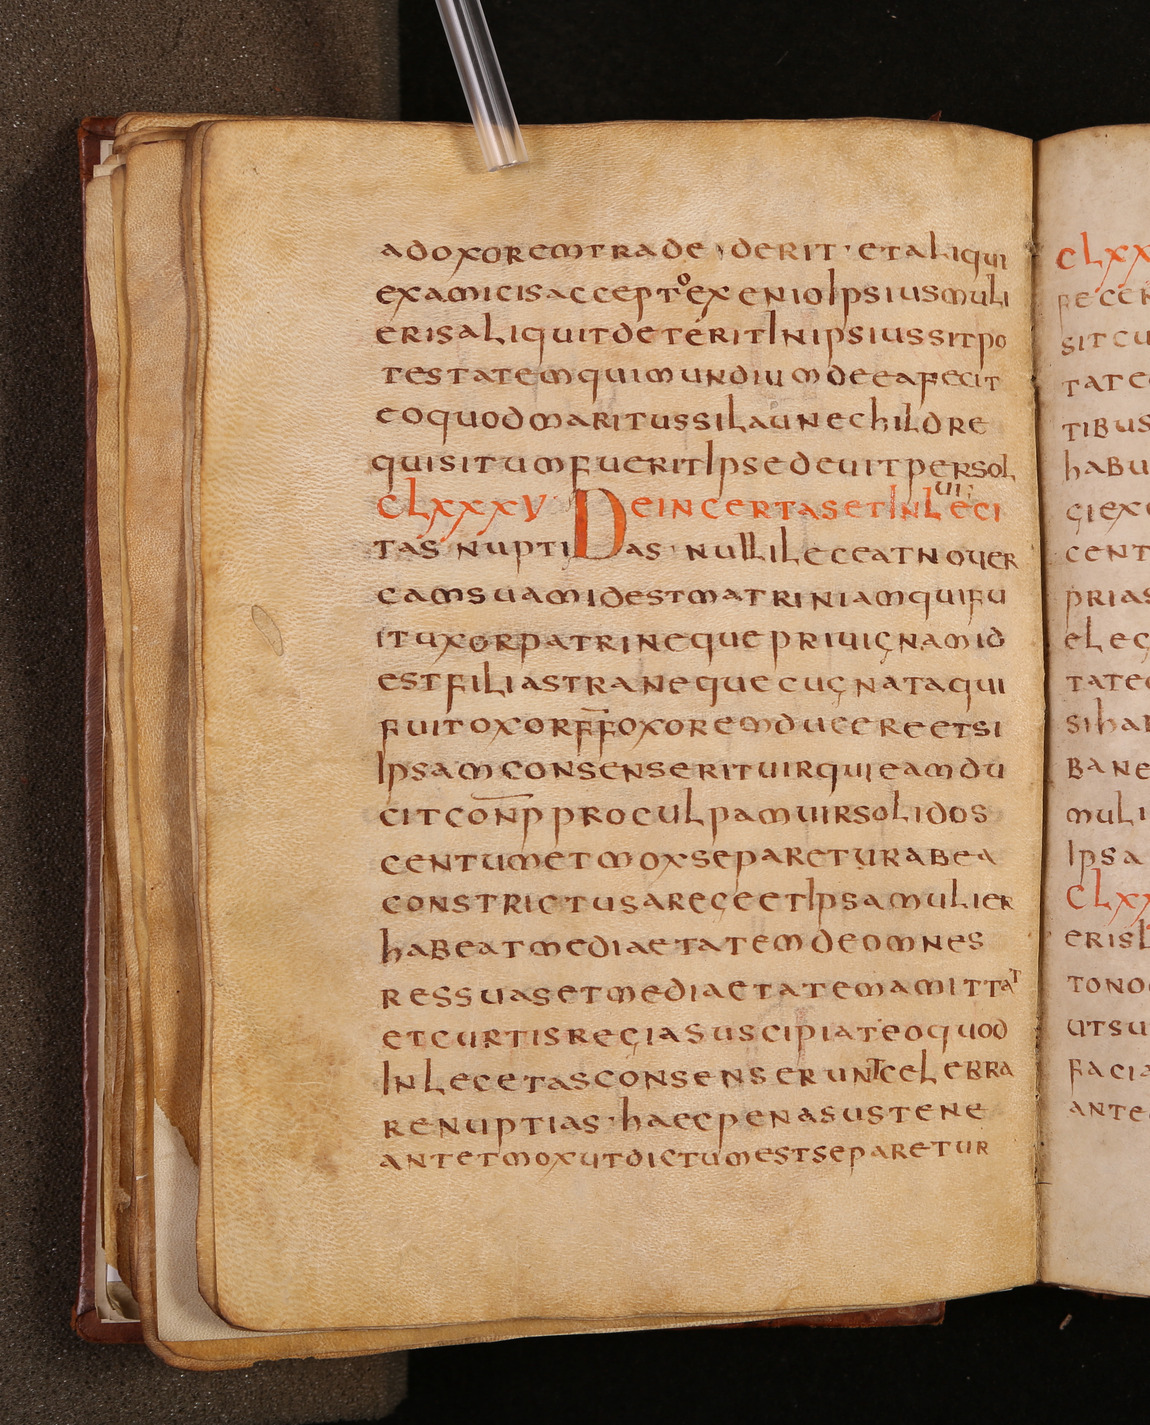 adoxoremtrade derit · etaliqui
examicisacceptoexenioipsiusmuli
erisaliquitdeteritinipsiussitpo
testatemquimundiumdeeafecit
eoquodmaritussilaunechildre
quisitumfueritipsedeuitpersol
uir
CLXXXV Deincertasetinleci
tas nuptias · nullileceatnouer
camsuamidestmatriniamquifu
ituxorpatrinequepriuiçnamid
estfiliastranequecuçnataqui
fuitoxorf̅f̅oxoremducereetsi
ipsamconsenserituirquieamdu
citcon̅p proculpamuirsolidos
centumetmoxsepareturabea
constrictusareçeetipsamulier
habeatmediaetatemdeomnes
ressuasetmediaetatemamittat
etcurtisreçiasuscipiateoquod
inlecetasconsenseruntcelebra
renuptias · haecpenasustene
antetmoxutdictumestseparetur
CLXX
fecer
sitcu
tate
tibus
habu
çiex
cent
prias
eleç
tate
sihab
bane
muli
ipsa
CLXX
erisl
tono
utsu
facia
ante